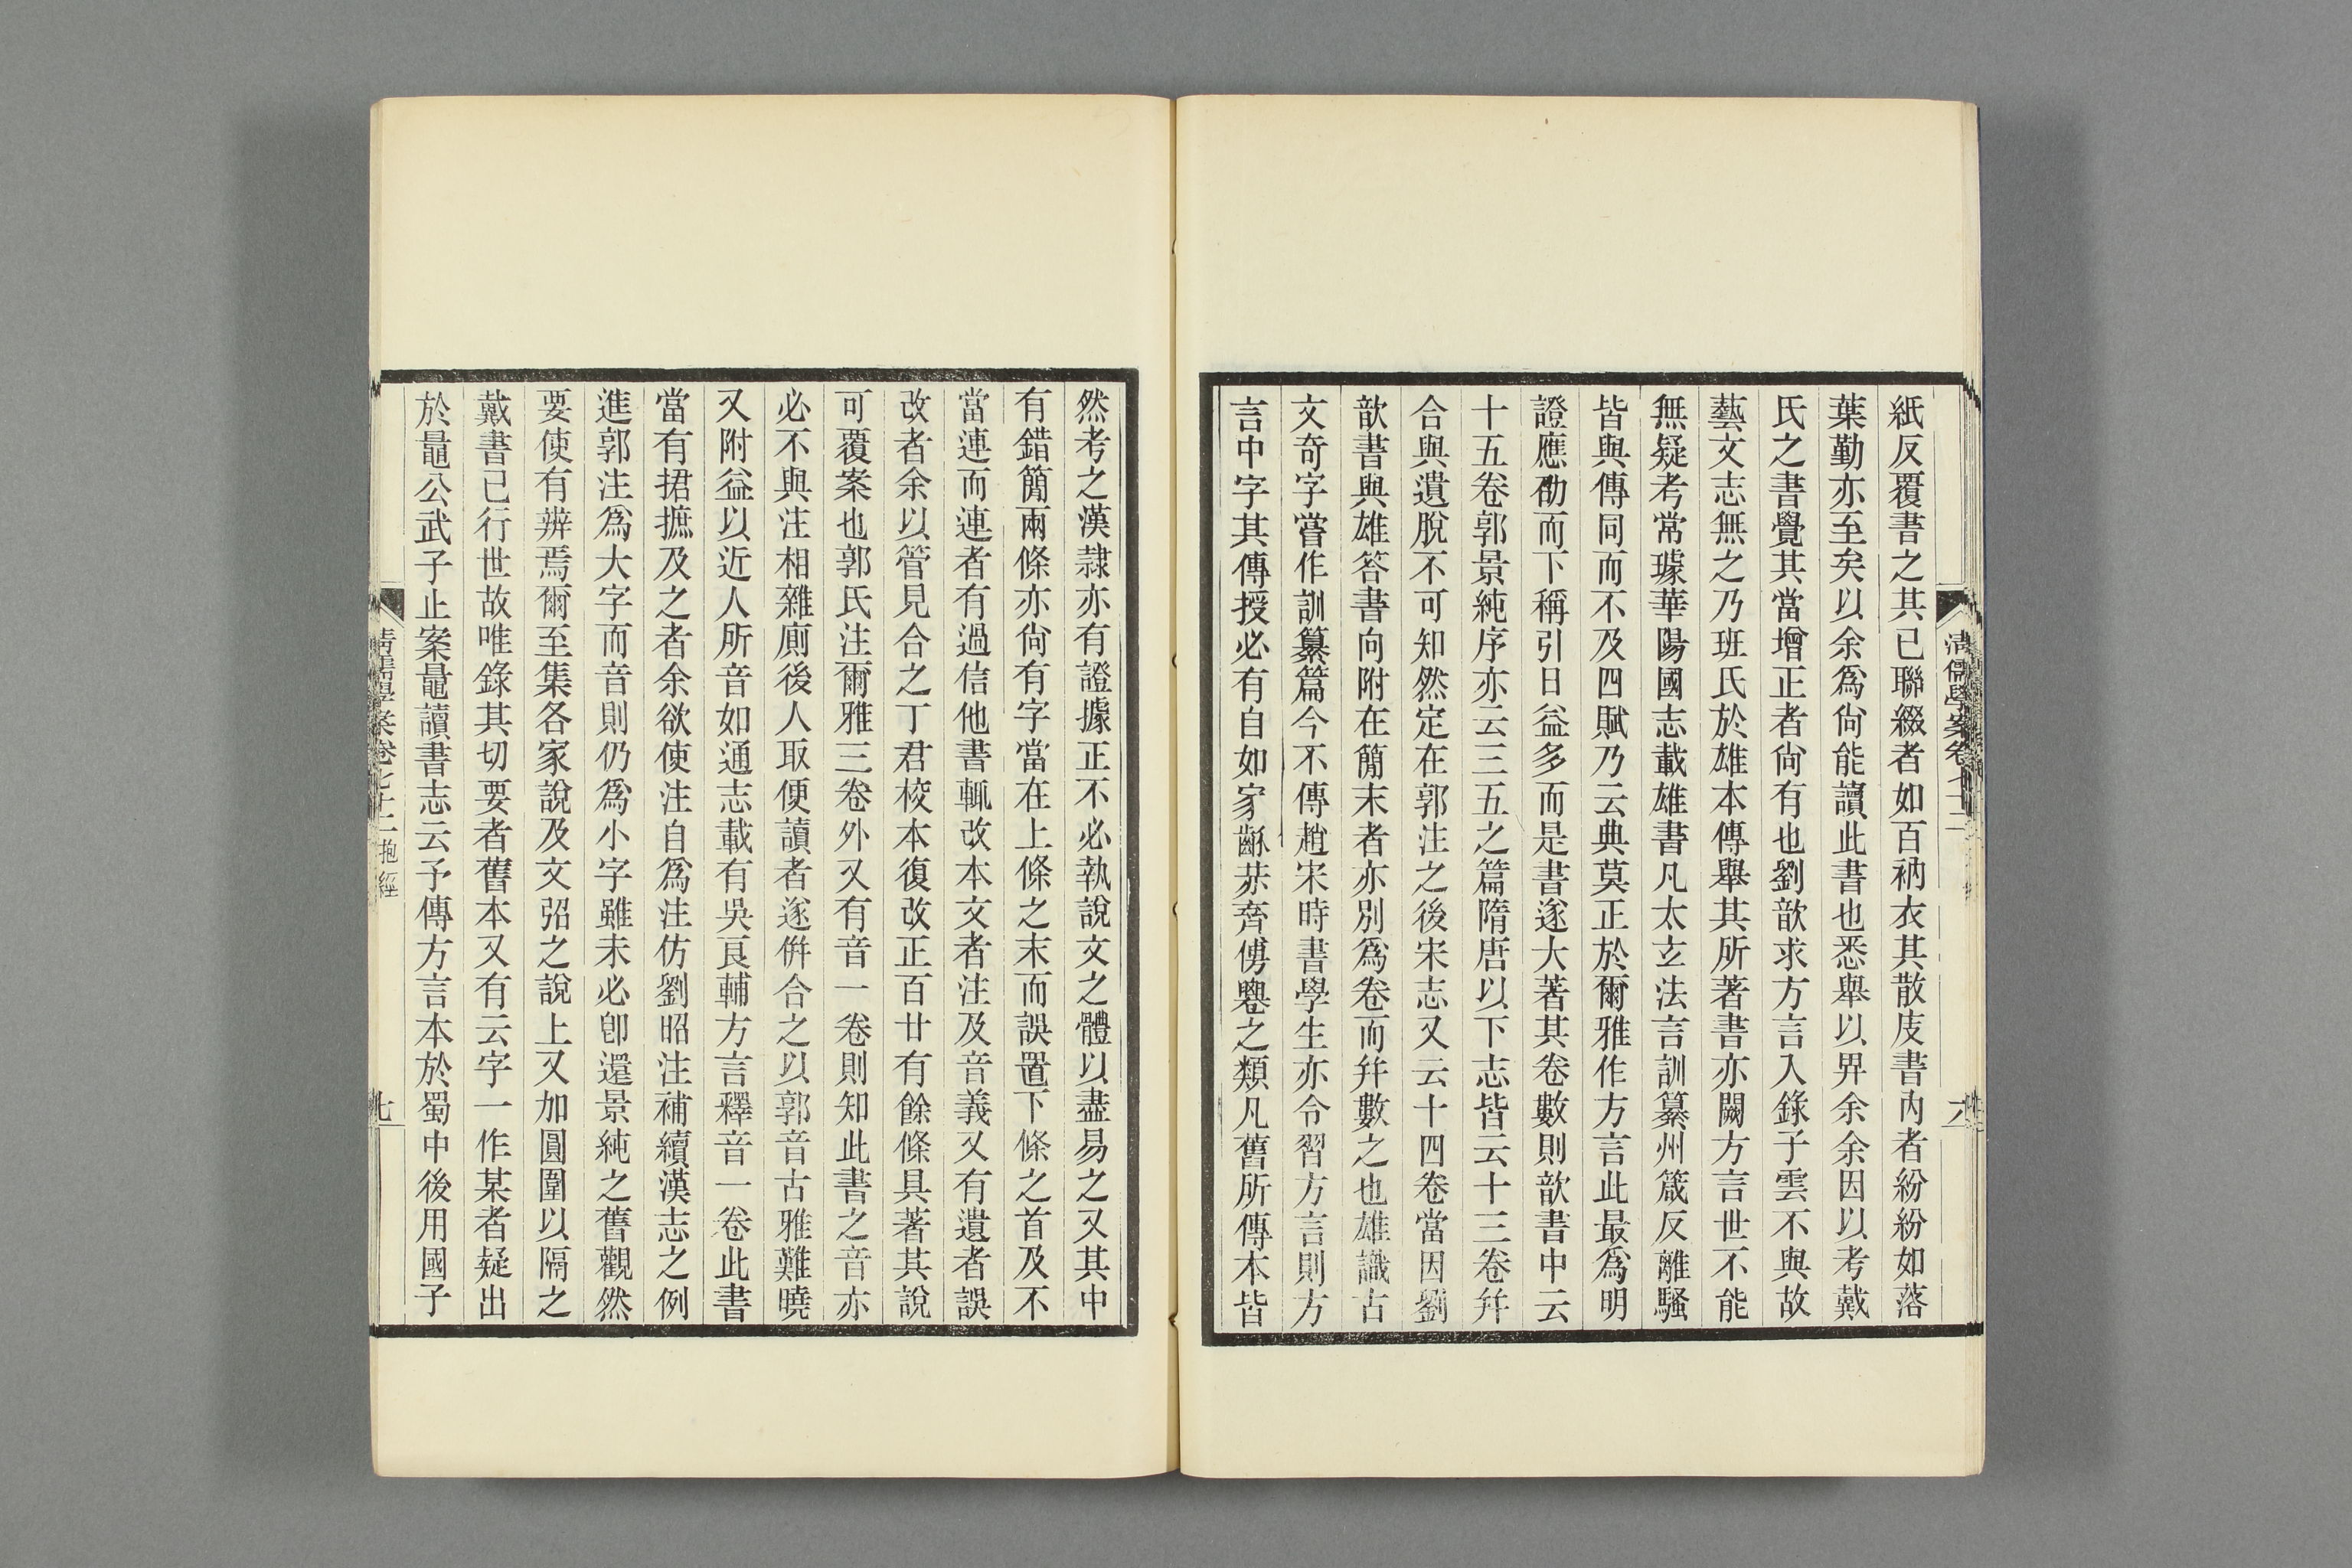 紙反覆書之其已聯綴者如百衲衣其散庋書內者紛紛如落
葉勤亦至矣以余爲尙能讀此書也悉舉以畀余余因以考戴
氏之書覺其當增正者尙有也劉歆求方言入錄子雲不與故
藝文志無之乃班氏於雄本傳舉其所著書亦闕方言世不能
無疑考常璩華陽國志載雄書凡太玄法言訓纂州箴反離騷
皆與傳同而不及四賦乃云典莫正於爾雅作方言此最爲明
證應劭而下稱引日益多而是書遂大著其卷數則歆書中云
十五卷郭景純序亦云三五之篇隋唐以下志皆云十三卷幷
合與遺脫不可知然定在郭注之後宋志又云十四卷當因劉
歆書與雄答書向附在簡末者亦別爲卷而幷數之也雄識古
文奇字嘗作訓纂篇今不傳趙宋時書學生亦令習方言則方
言中字其傳授必有自如家龢𢦶齊僀㽃之類凡舊所傳本皆
然考之漢隸亦有證據正不必執說文之體以盡易之又其中
有錯簡兩條亦尙有字當在上條之末而誤置下條之首及不
當連而連者有過信他書輒改本文者注及音義又有遺者誤
改者余以管見合之丁君校本復改正百廿有餘條具著其說
可覆案也郭氏注爾雅三卷外又有音一卷則知此書之音亦
必不與注相雜廁後人取便讀者遂倂合之以郭音古雅難曉
又附益以近人所音如通志載有吳良輔方言釋音一卷此書
當有捃摭及之者余欲使注自爲注仿劉昭注補續漢志之例
進郭注爲大字而音則仍爲小字雖未必卽還景純之舊觀然
要使有辨焉爾至集各家說及文弨之說上又加圓圍以隔之
戴書已行世故唯錄其切要者舊本又有云字一作某者疑出
於鼂公武子止案鼂讀書志云予傳方言本於蜀中後用國子
淸儒學案卷七十二 抱經
七